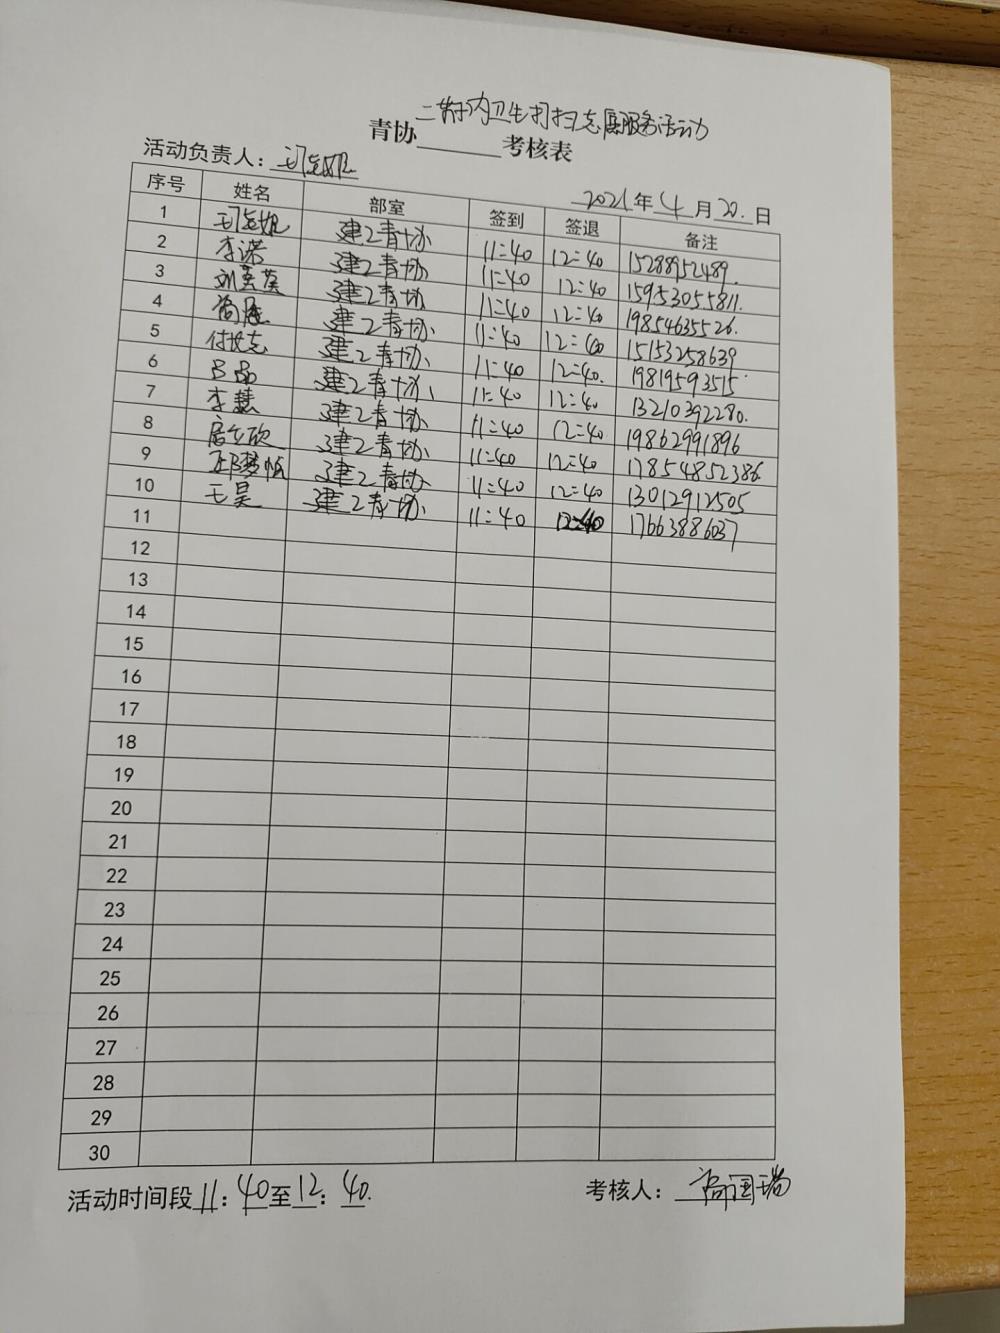 二餐内卫生打扫志愿服务活动
青协______考核表
活动负责人：
2021年4月20.日
序号 姓名 部室 签到 签退 备注
1 建工青协 11:40 12:40 15288952489.
2 李诺 建工青协 11:40 12:40 15953055811.
3 建工青协 11:40 12:40 19854635526.
4 建工青协 11:40 12:40 15153258639
5 建工青协 11:40 12:40. 19819593515
6 吕品 建工青协 11:40 12:40 13210392280.
7 李慧 建工青协 11:40 12:40 19862991896
8 建工青协 11:40 12:40 17854852386
9 建工青协 11:40 12:40 13012912505
10 王昊 建工青协 11:40 12:40 17663886037
11
12
13
14
15
16
17
18
19
20
21
22
23
24
25
26
27
28
29
30
活动时间段11:40至12:40.
考核人：